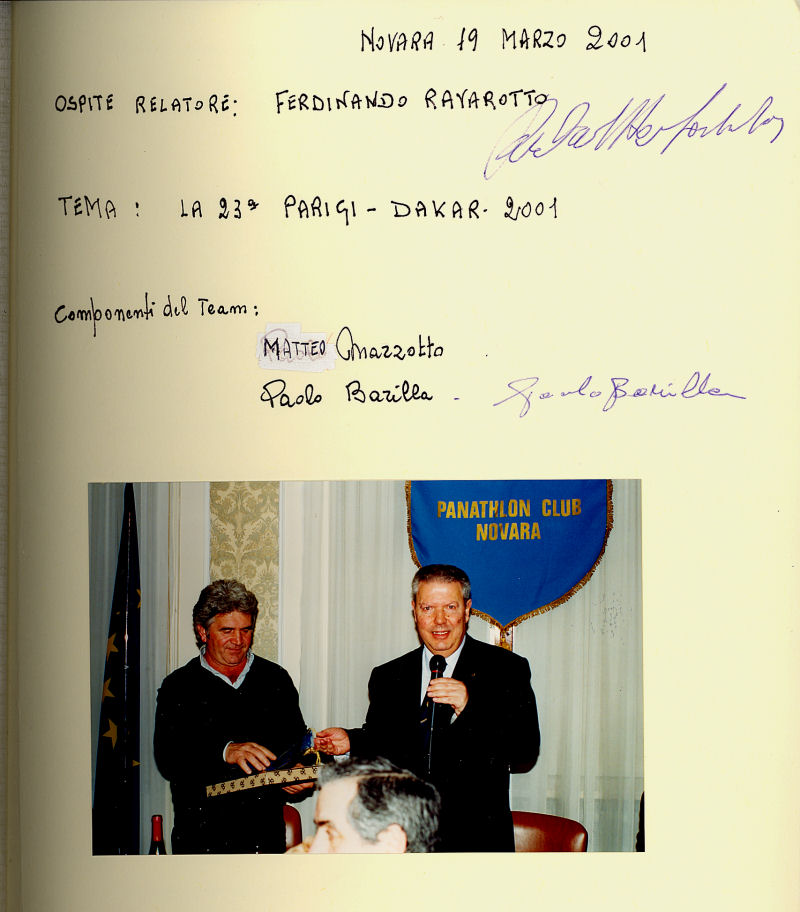 NOVARA 19 MARZO 2001
OSPITE RELATORE: FERDINANDO RAVAROTTO
TEMA : LA 23ª PARIGI - DAKAR - 2001
Componenti del Team:
MATTEO Marzotto
Paolo Barilla - Paolo Barilla
PANATHLON CLUB
NOVARA